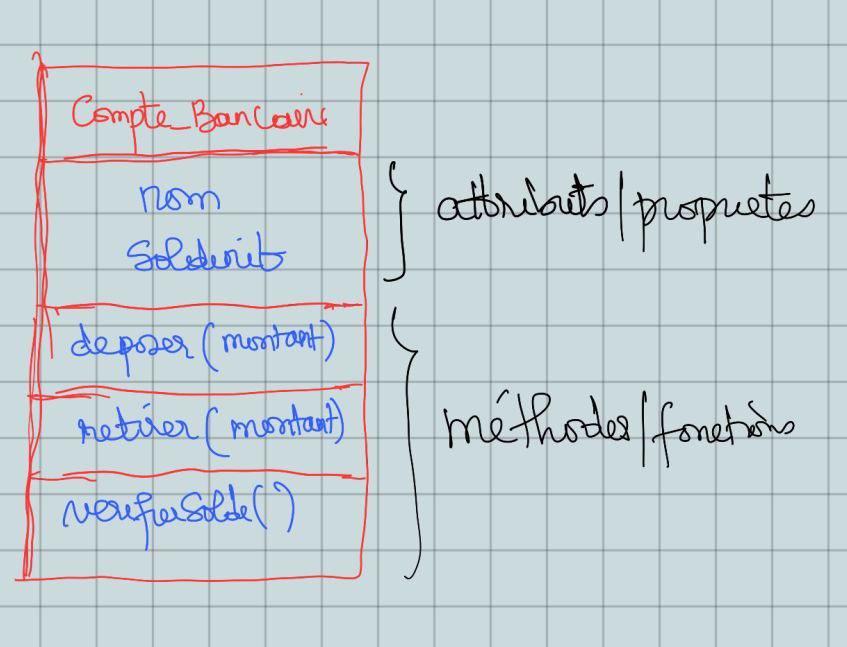 Compte_Bancaire
nom
Soldeinit
attributs/proprietes
deposer(montant)
retirer(montant)
méthodes/fonctions
verifierSolde()